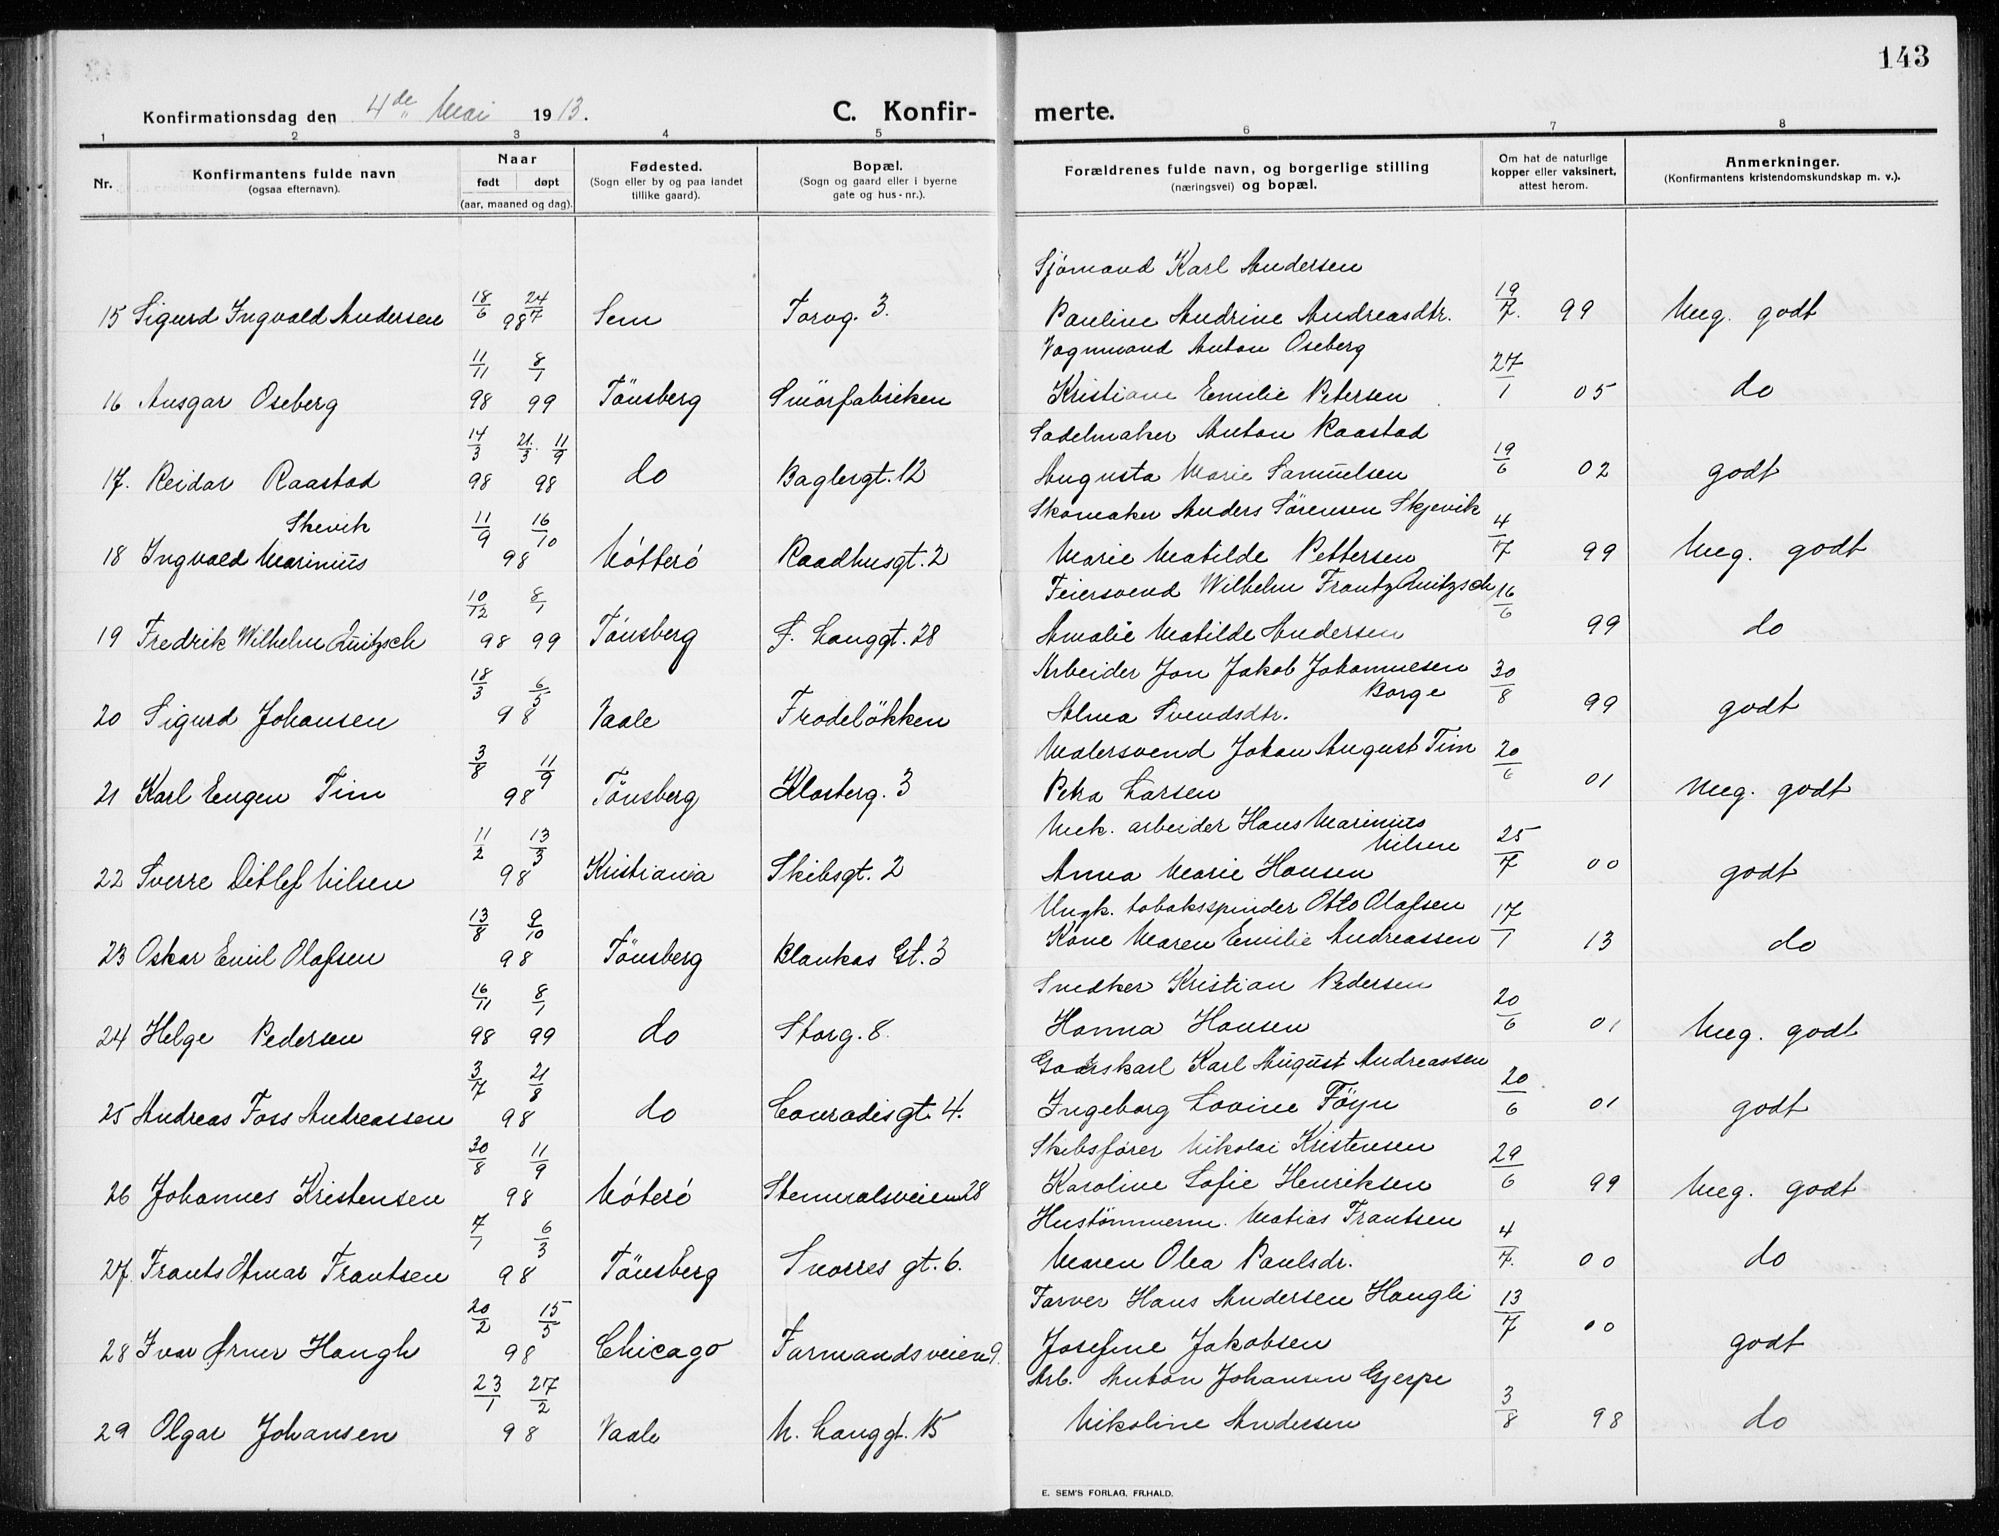 143
Konfirmationsdag den 4de Mai 1913. C. Konfirmerte.
1 2 3 4 5 6 7 8
Nr. Konfirmantens fulde navn (ogsaa efternavn). Naar født døpt (aar, maaned og dag). Fødested. (Sogn eller by og paa landet tillike gaard). Bopæl. (Sogn og gaard eller i byerne gate og hus-nr.). Forældrenes fulde navn, og borgerlige stilling (næringsvei) og bopæl. Om hat de naturlige kopper eller vaksinert, attest herom. Anmerkninger. (Konfirmantens kristendomskundskap m. v.).
Sjømand Karl Andersen
15 Sigurd Ingvald Andersen 18/6 24/7 98 Sem Torvg. 3. Pauline Andrine Andreasdtr. 19/7. 99 Meg. godt
Vognmand Anton Oseberg
16 Ansgar Oseberg 11/11 98 8/1 99 Tönsberg Smörfabriken Kristiane Emilie Petersen 27/1 05 do
Sadelmaker Anton Raastad
17. Reidar Raastad 14/3 98 21/3. 11/9 98 do Baglergt. 12 Augusta Marie Samuelsen 19/6 02 godt
Skomaker Anders Sørensen Skjevik
18 Ingvald Marinius Skevik 11/9 16/10 98 Nötterö Raadhusgt. 2 Marie Matilde Pettersen 4/7 99 Meg. godt
Feiersvend Wilhelm Frantz Quitzsch
19 Fredrik Wilhelm Quitzsch 10/12 98 8/1 99 Tönsberg S. Langgt. 28 Amalie Matilde Andersen 16/6 99 do
Arbeider Jon Jakob Johannesen Borge
20 Sigurd Johansen 18/3 6/5 98 Vaale Frodelökken Alma Svendsdtr. 30/8 99 godt
Malersvend Johan August Tim
21 Karl Eugen Tim 3/8 11/9 98 Tönsberg Klosterg. 3 Petra Larsen 20/6 01 Meg. godt
Mek. arbeider Hans Marinius Nilsen
22 Sverre Ditlef Nilsen 11/2 13/3 98 Kristiania Skibsgt. 2 Anna Marie Hansen 25/7 00 godt
Ungk. tobaksspinder Otto Olafsen
23 Oskar Emil Olafsen 13/8 9/10 98 Tönsberg Blankas Gt. 3 Kone Maren Emilie Andreassen 17/1 13 do
Snedker Kristian Pedersen
24 Helge Pedersen 16/11 98 8/1 99 do Storg. 8. Hanna Hansen 20/6 01 Meg. godt
Gaardskarl Karl August Andreassen
25 Andreas Foss Andreassen 3/7 21/8 98 do Conradisgt. 4. Ingeborg Lovine Föyn 20/6 01 godt
Skibsfører Nikolai Kristensen
26 Johannes Kristensen 30/8 11/9 98 Nöterö Stenmalsveien 28 Karoline Sofie Henriksen 29/6 99 Meg. godt
Hustömmerm. Matias Frantsen
27. Frants Otmar Frantsen 7/1 6/3 98 Tönsberg Snorres gt. 6. Maren Olea Paulsdr. 4/7. 00 do
Farver Hans Andersen Haugli
28 Ivar Ørner Haugli 20/2 15/5 98 Chicago Farmandsveien 9. Josefine Jakobsen 13/7 00 godt
Arb. Anton Johansen Gjerpe
29 Olgar Johansen 23/1 27/2 98 Vaale N. Langgt. 15 Nikoline Andersen 3/8 98 do
E. SEM'S FORLAG, FR.HALD.